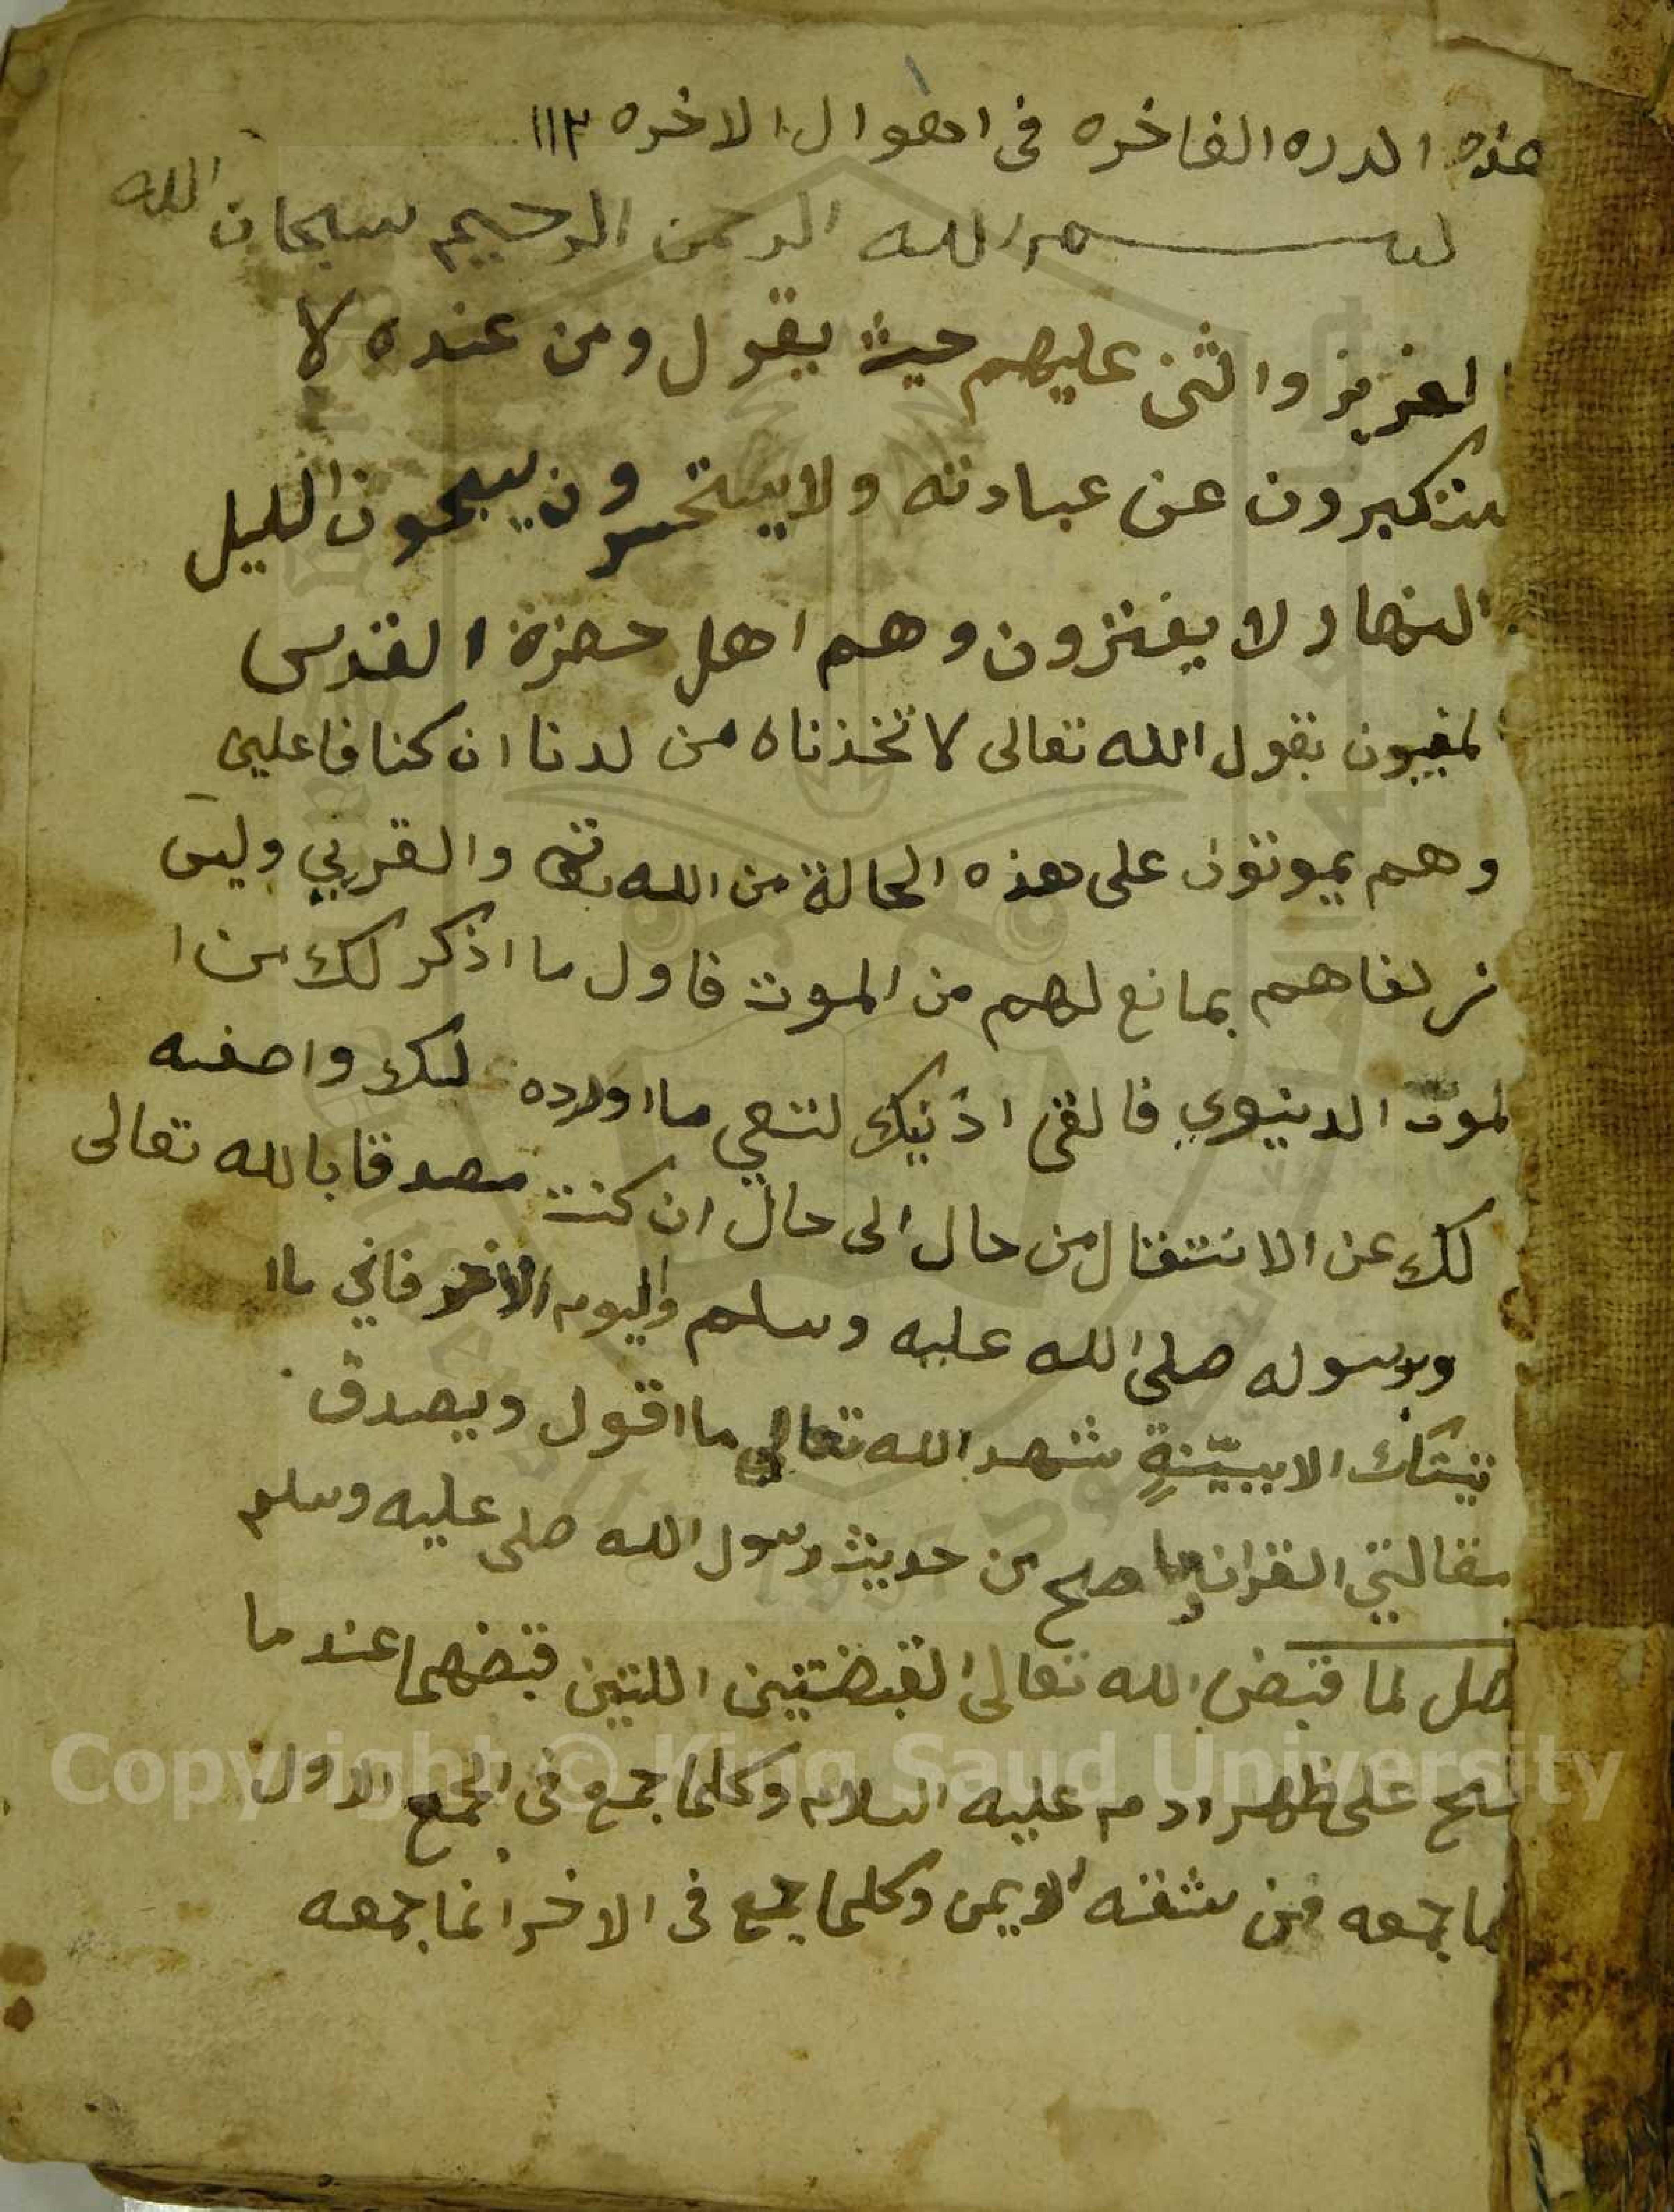 هذه الدره الفاخره فى احوال الاخره ١١٣
بسم الله الرحمن الرحيم سبحان الله
العزيز واثنى عليهم حيث يقول ومن عنده لا
يستكبرون عن عبادته ولا يستحسرون يسبحون الليل
النهار لا يفترون وهم اهل حضرة القدس
لمغيبون بقول الله تعالى لا تخذناه من لدنا ان كنا فاعلين
وهم يموتون على هذه الحالة من الله والقربي وليس
زلفاهم بمانع لهم من الموت فاول ما اذكر لك من ا
لموت الدنيوي فالقى اذنيك لتعي ما اورده لك واصفه
لك عن الانتقال من حال الى حال ان كنت مصدقا بالله تعالى
وبرسوله صلى الله عليه وسلم واليوم الاخر فاني ما ا
تيتك الا ببيّنةٍ شهد الله تعالى ما اقول ويصدق
مقالتي القران وما صح من حديث رسول الله صلى عليه وسلم
فصل لما قبض الله تعالى القبضتين اللتين قبضهما عند ما
مسح على ظهر ادم عليه السلام وكلما جمع فى الجمع الاول
نما جمعه من شقه الايمن وكلما جمع فى الاخر انما جمعه
Copyright © King Saud University